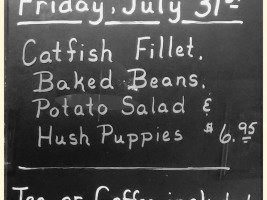 Friday, July 31st
Catfish Fillet,
Baked Beans,
Potato Salad &
Hush Puppies $6.95
Tea or Coffee included